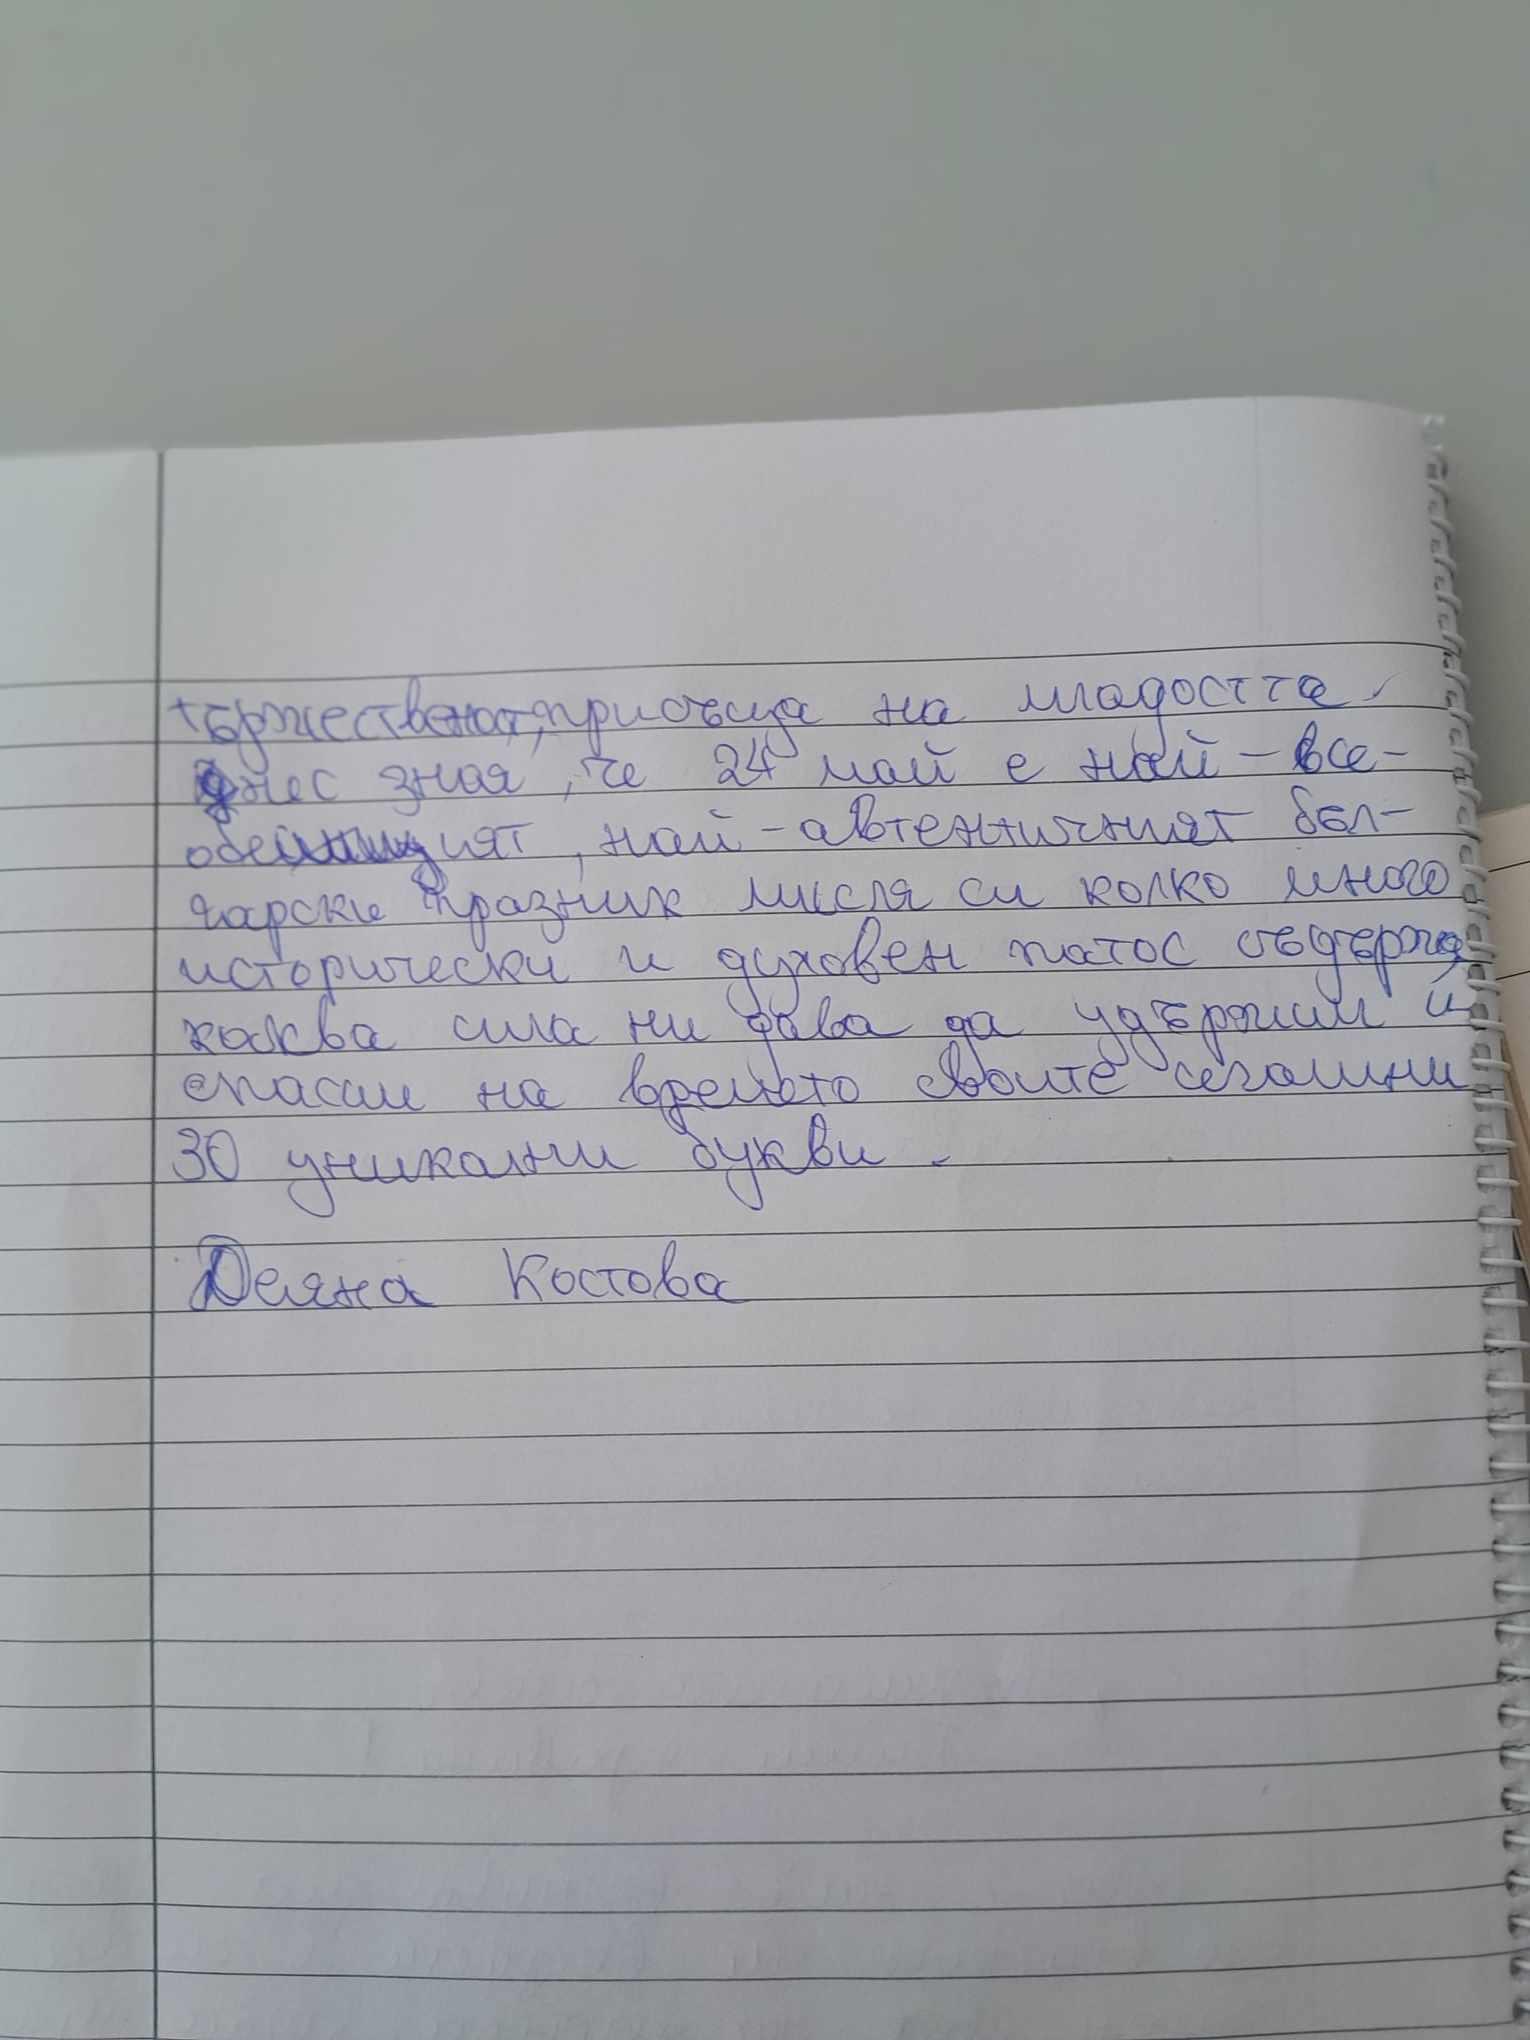 тържествена, присъща на младостта.
Днес зная, че 24 май е най-все-
обемният, най-автентичният бъл-
гарски празник мисля си колко много
исторически и духовен патос съдържа,
каква сила ни дава да удържим и
спасим на времето своите сегашни
30 уникални букви.
Деяна Костова